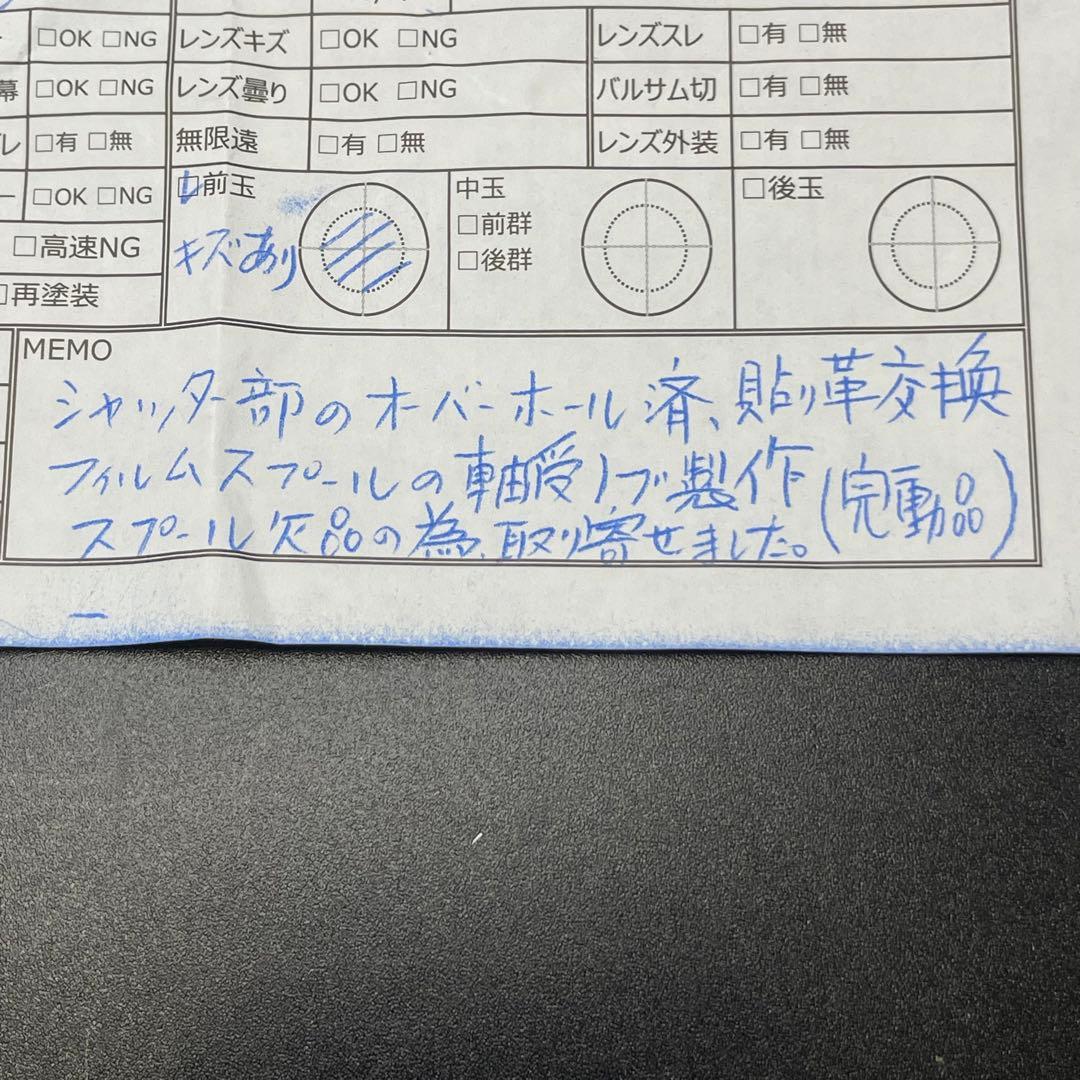 □OK □NG レンズキズ □OK □NG レンズスレ □有 □無
幕 □OK □NG レンズ曇り □OK □NG バルサム切 □有 □無
レ □有 □無 無限遠 □有 □無 レンズ外装 □有 □無
ー □OK □NG □前玉 中玉 □後玉
□前群
□高速NG キズあり □後群
□再塗装
MEMO
シャッター部のオーバーホール済、貼り革交換
フィルムスプールの軸受ノブ製作(完動品)
スプール欠品の為、取り寄せました。